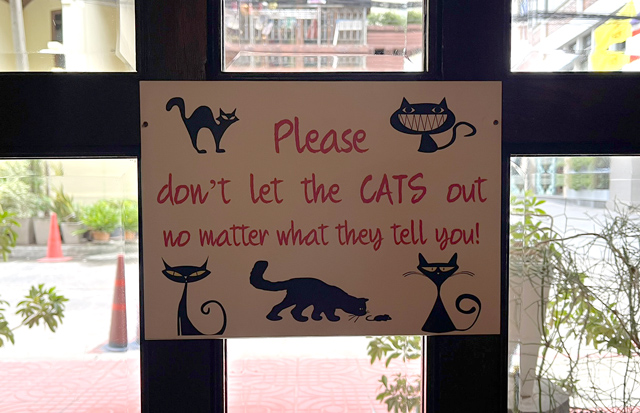 Please
don't let the CATS out
no matter what they tell you!